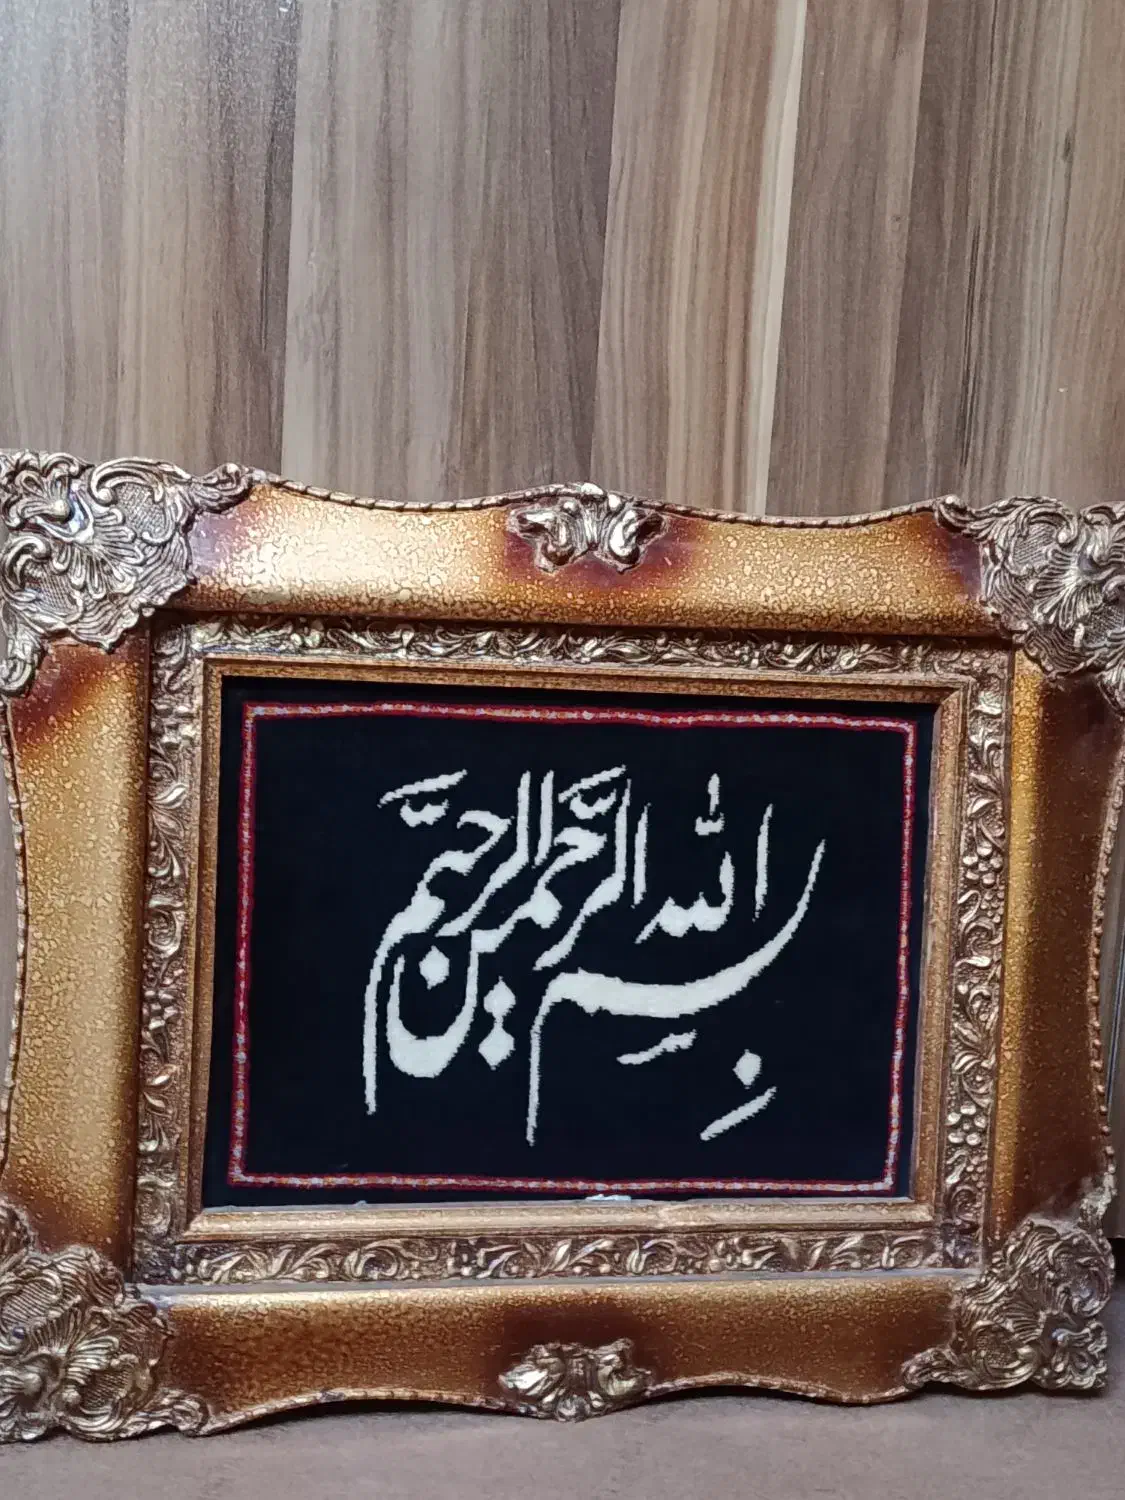 بِسْمِ اللّٰه الرَّحْمن الرحیم